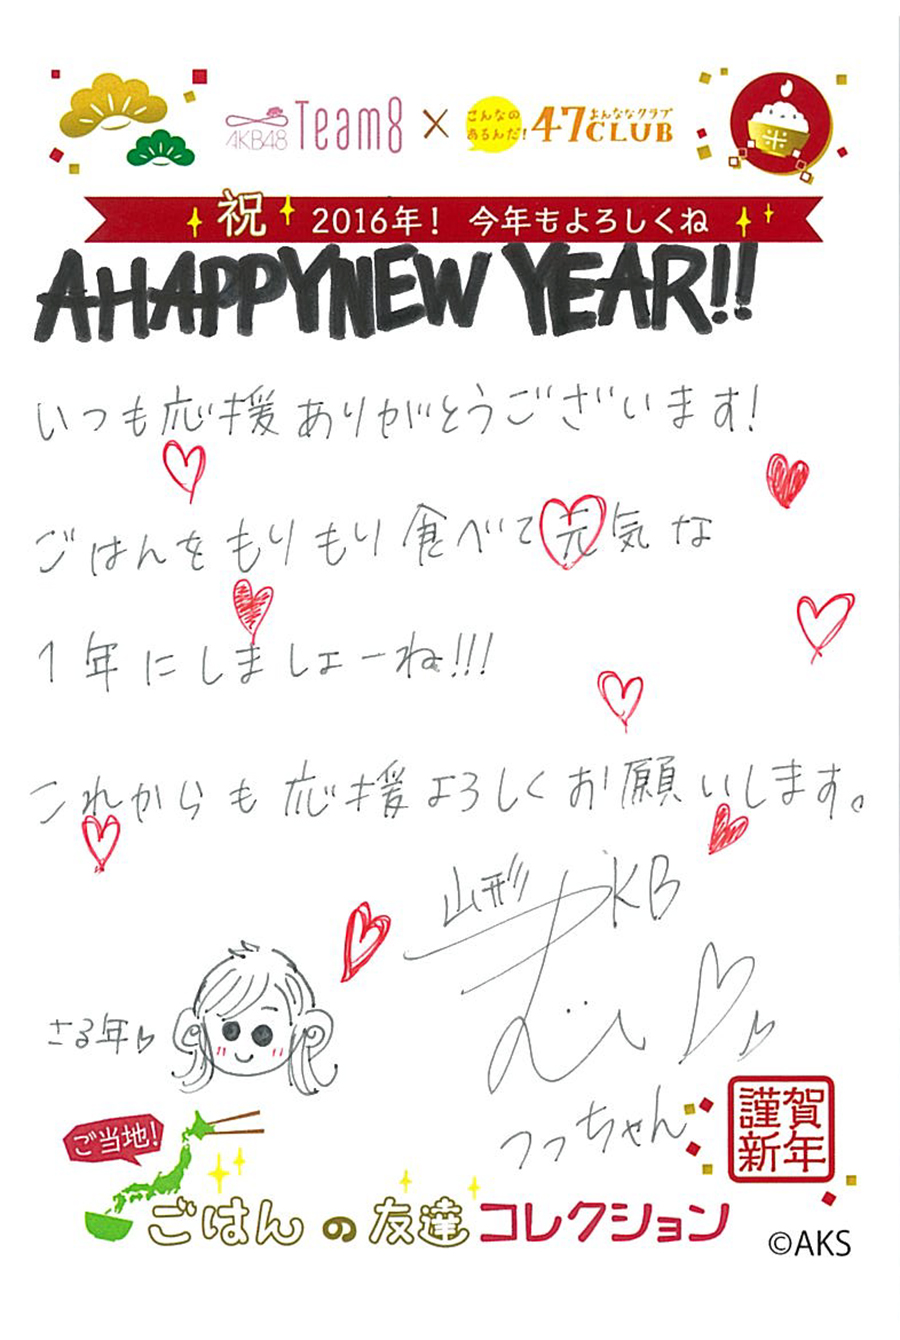 AKB48 Team8 × こんなの あるんだ! 47CLUB よんななクラブ
米
祝 2016年! 今年もよろしくね
A HAPPY NEW YEAR!!
いつも応援ありがとうございます!
ごはんをもりもり食べて元気な
1年にしましょーね!!!
これからも応援よろしくお願いします。
山形 AKB
さる年
つっちゃん
謹賀
新年
ご当地!
ごはんの友達コレクション
©AKS